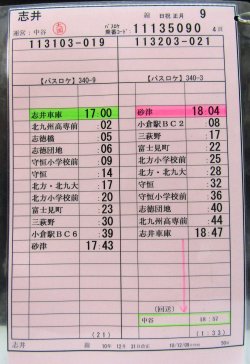 志井 日祝 正月 9
運営：中谷 バスロケ 乗番コード： 11135090 4
113103-019 113203-021
【バスロケ】340-9 【バスロケ】340-3
志井車庫 17 00 砂津 18 04
北九州高専前 :02 小倉駅ＢＣ２ :08
志徳橋 :05 三萩野 :17
志徳団地 :06 富士見町 :22
守恒小学校前 :09 北方小学校前 :25
守恒 :14 北方・北九大 :28
北方・北九大 :17 守恒 :32
北方小学校前 :20 守恒小学校前 :36
富士見町 :23 志徳団地 :40
三萩野 :30 北九州高専前 :44
小倉駅ＢＣ６ :39 志井車庫 18 47
砂津 17:43
(回送)
中谷 18:57
(21) (1:33)
志井